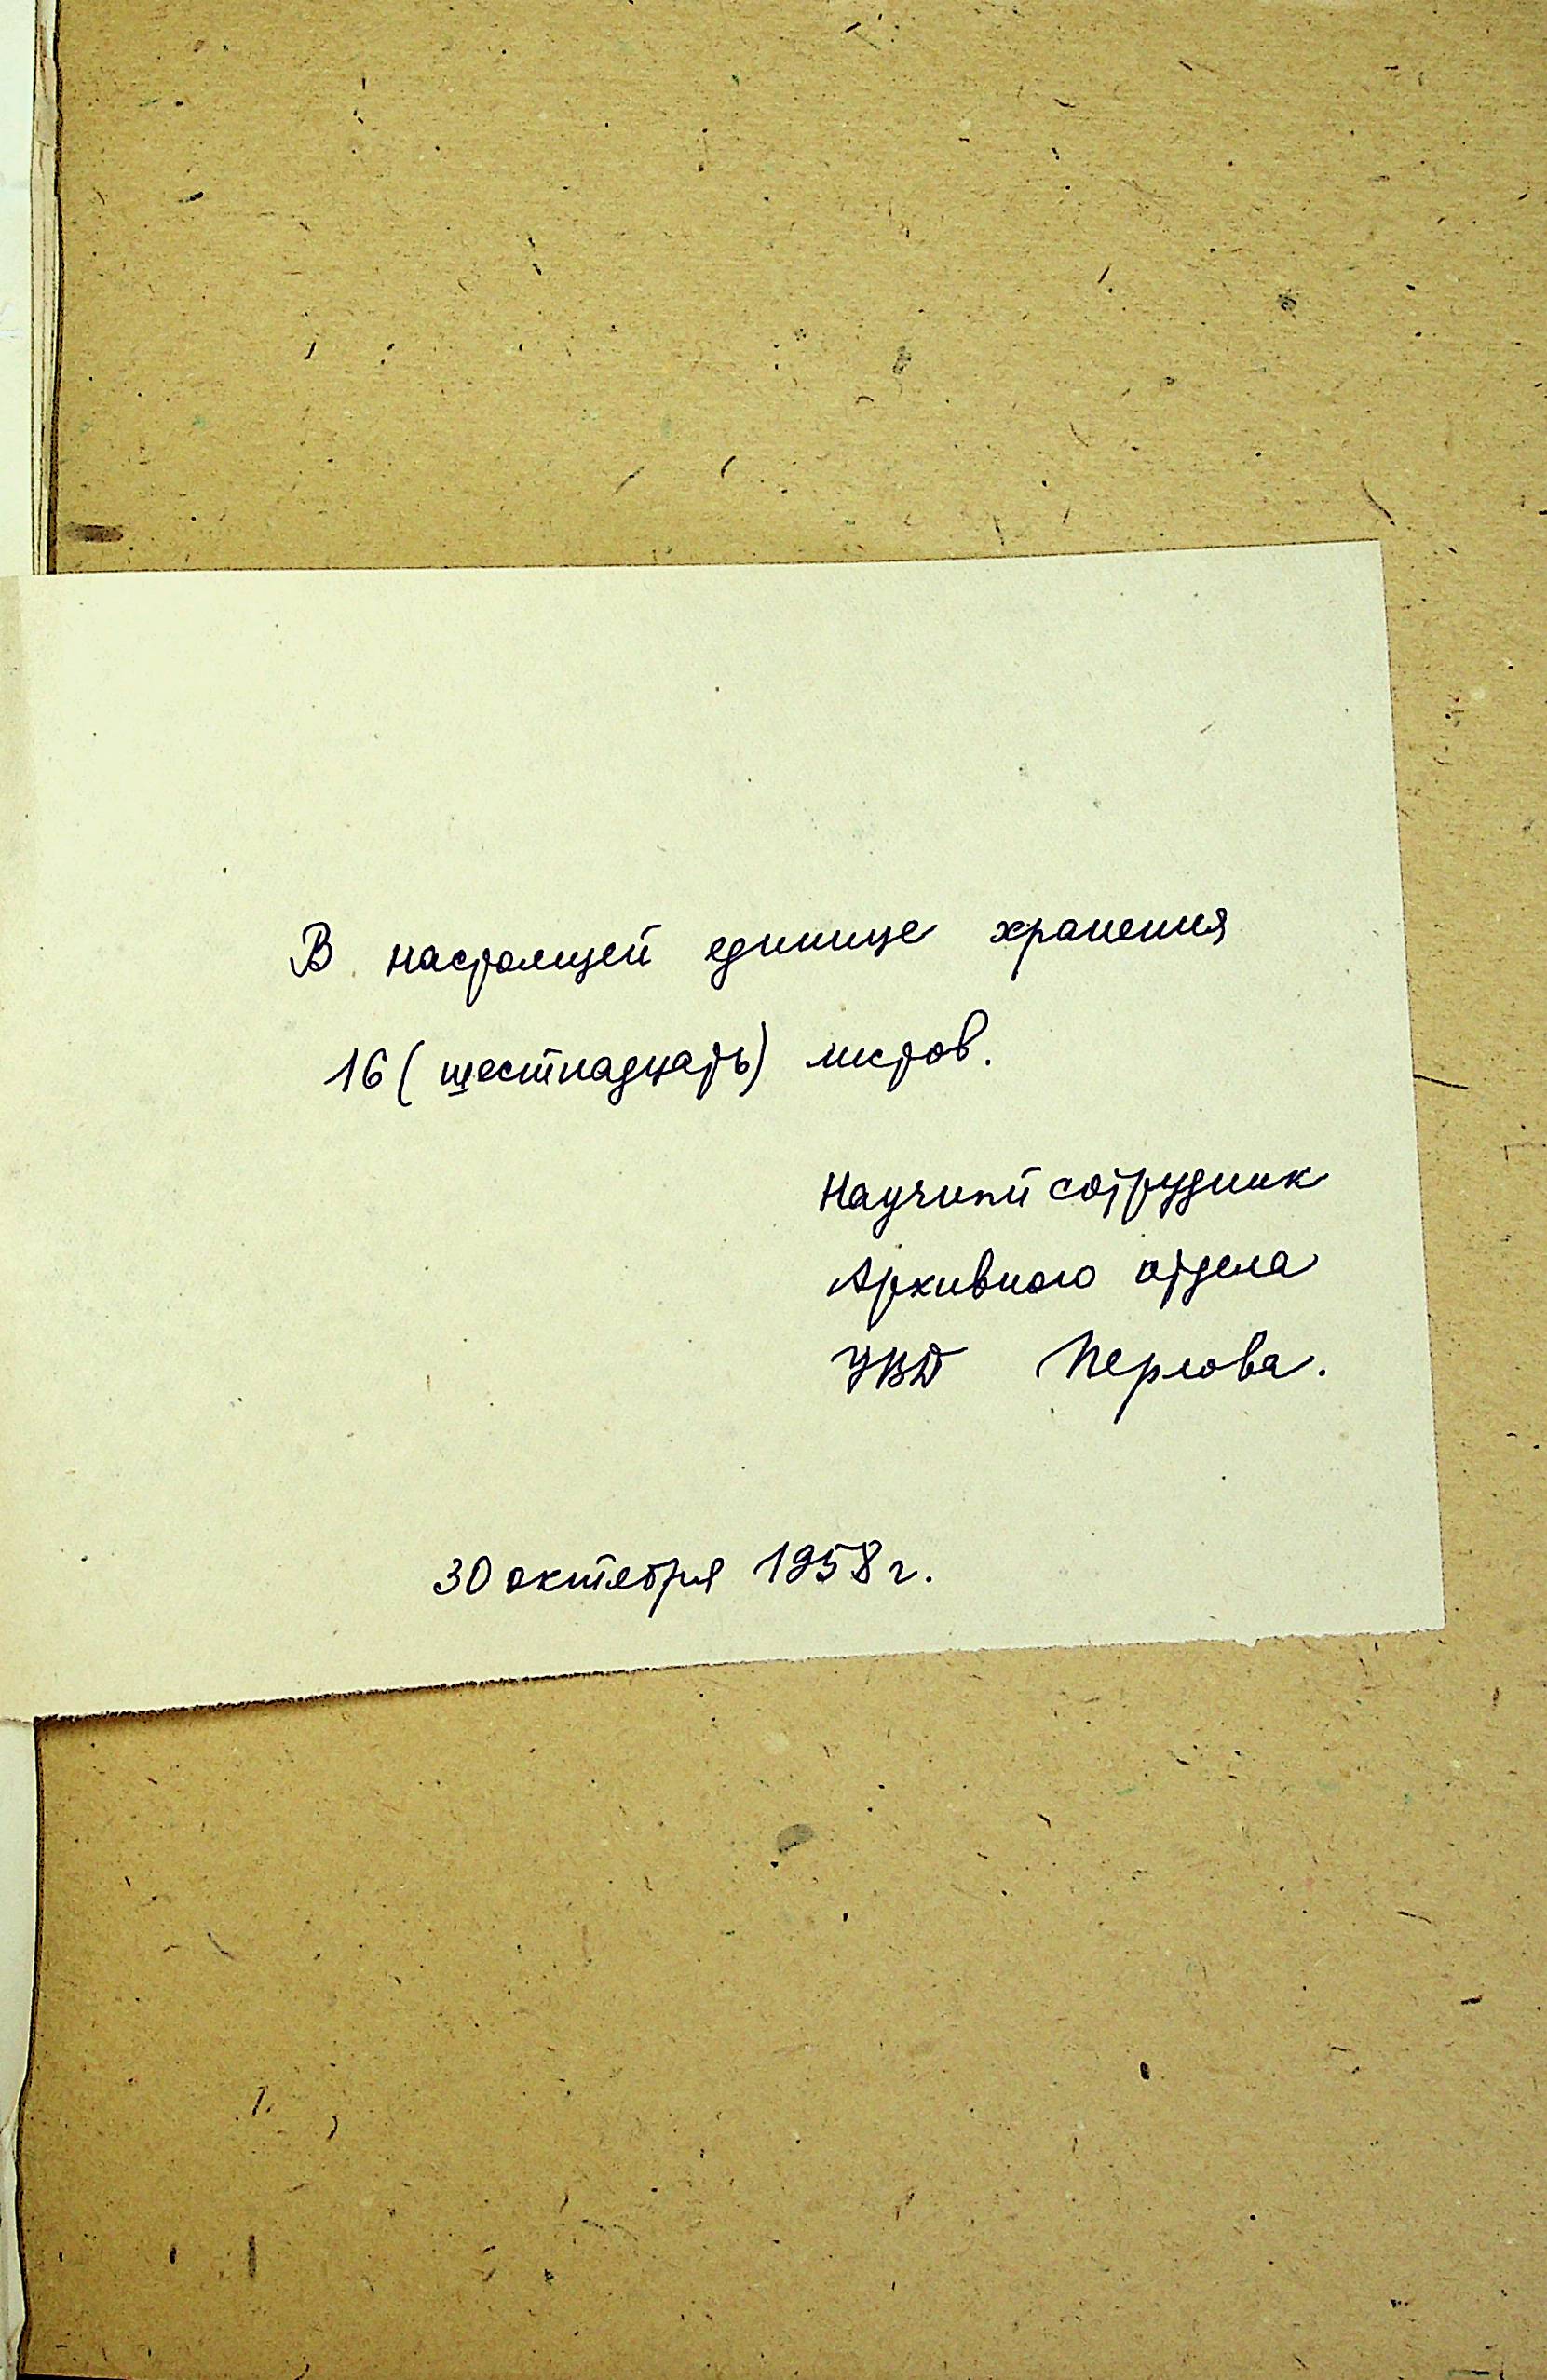 В настоящей единице хранения
16 (шестнадцать) листов.
Научный сотрудник
Архивного отдела
УВД Перлова.
30 октября 1958 г.